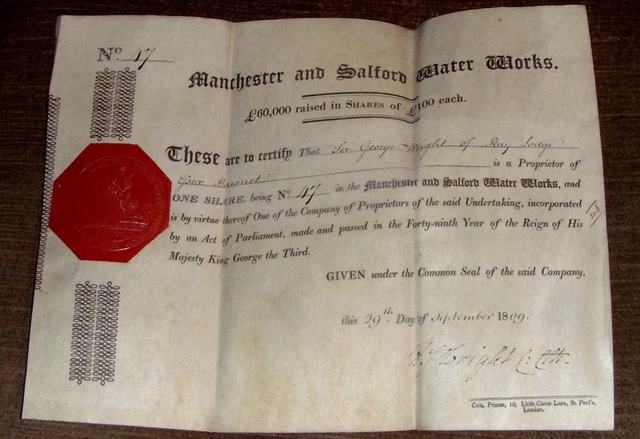 No. 47
Manchester and Salford Water Works.
£60,000 raised in SHARES of £100 each.
These are to certify That Sir George Wright of Ray Lodge
Essex Baronet is a Proprietor of
ONE SHARE, being No. 47 in the Manchester and Salford Water Works, and
is by virtue thereof One of the Company of Proprietors of the said Undertaking, incorporated
by an Act of Parliament, made and passed in the Forty-ninth Year of the Reign of His
Majesty King George the Third.
GIVEN under the Common Seal of the said Company,
this 29th Day of September 1809.
Wright
Cox, Printer, 10, Little Carter Lane, St. Paul's,
London.